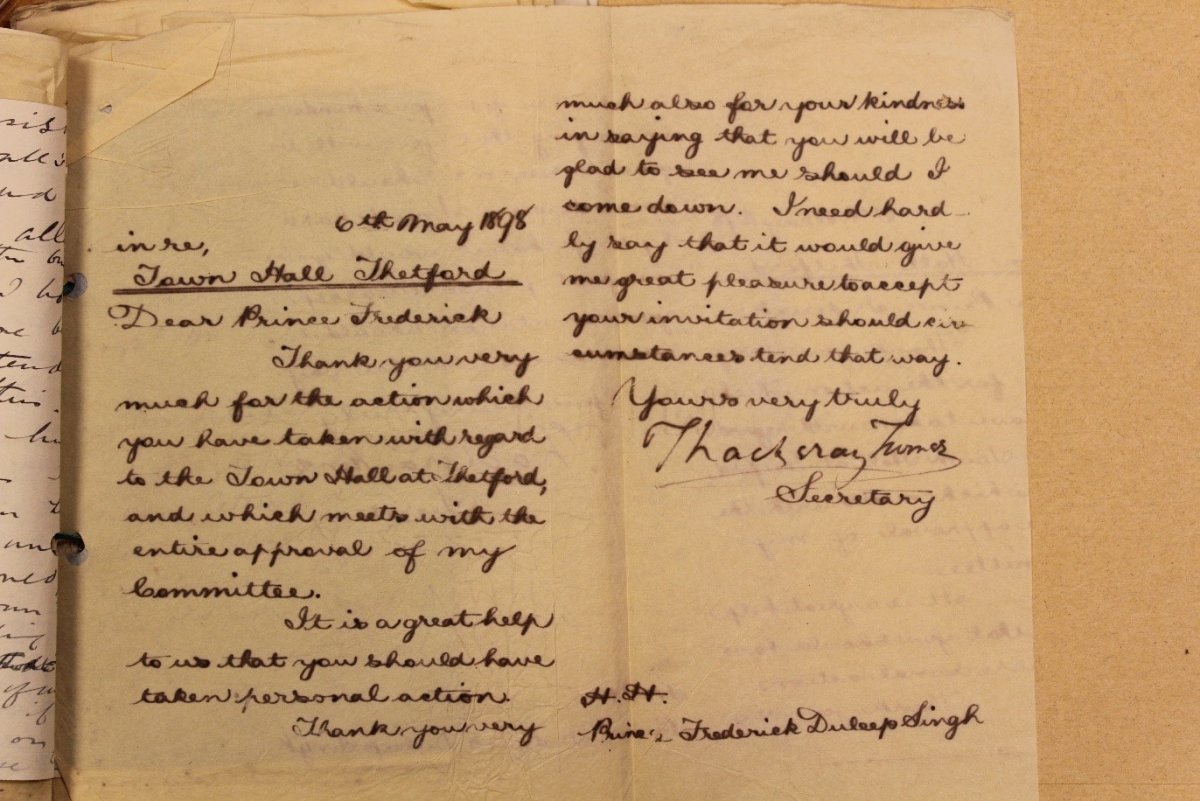 6th May 1898
in re,
Town Hall Thetford
Dear Prince Frederick
Thank you very
much for the action which
you have taken with regard
to the Town Hall at Thetford,
and which meets with the
entire approval of my
Committee.
It is a great help
to us that you should have
taken personal action.
Thank you very
much also for your kindness
in saying that you will be
glad to see me should I
come down. I need hard-
ly say that it would give
me great pleasure to accept
your invitation should cir
cumstances tend that way.
Yours very truly
Thackeray Turner
Secretary
H.H.
Prince Frederick Duleep Singh
all